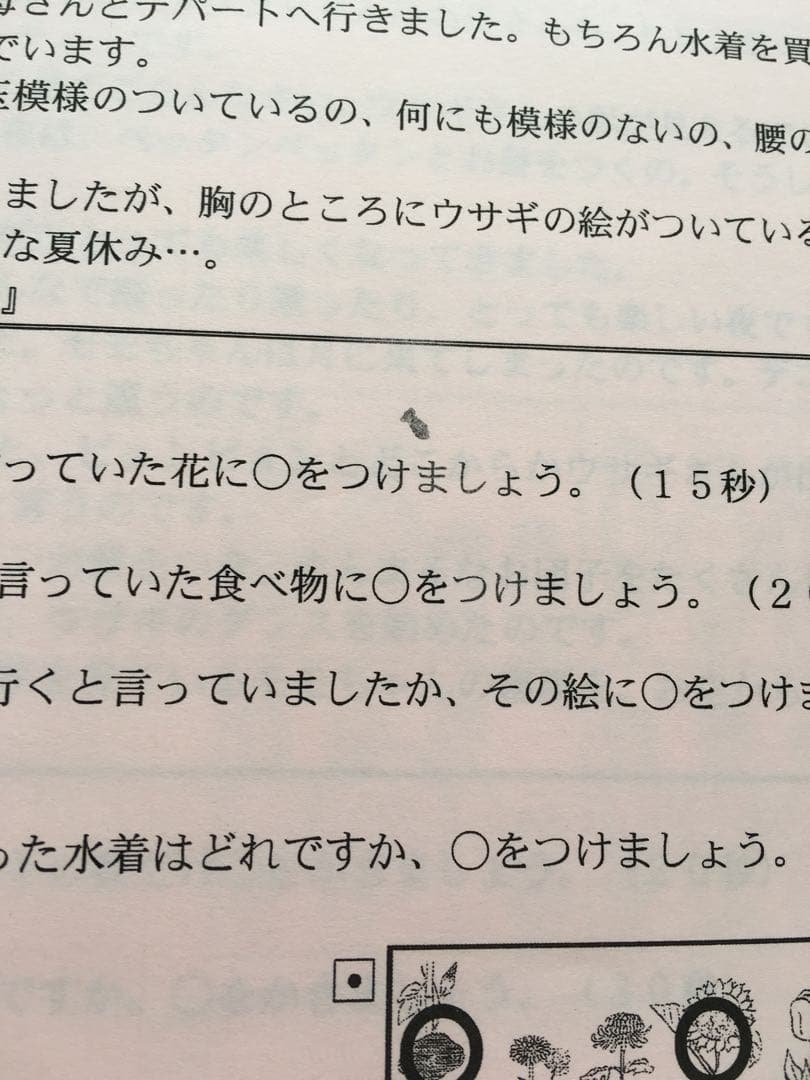 母さんとデパートへ行きました。もちろん水着を買
でいます。
玉模様のついているの、何にも模様のないの、腰の
ましたが、胸のところにウサギの絵がついている
な夏休み…。
』
っていた花に○をつけましょう。（１５秒）
言っていた食べ物に○をつけましょう。（２
行くと言っていましたか、その絵に○をつけま
った水着はどれですか、○をつけましょう。